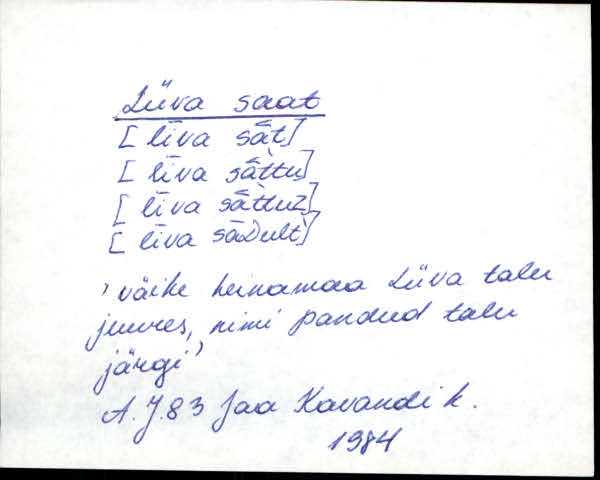 Liiva saat
[līva sāt]
[līva sā̀ttu]
[līva sā̀ttuz]
[līva sāDult]
' väike heinamaa Liiva talu
juures, nimi pandud talu
järgi'
A. J. 83 Jaa Kavandi k.
1984